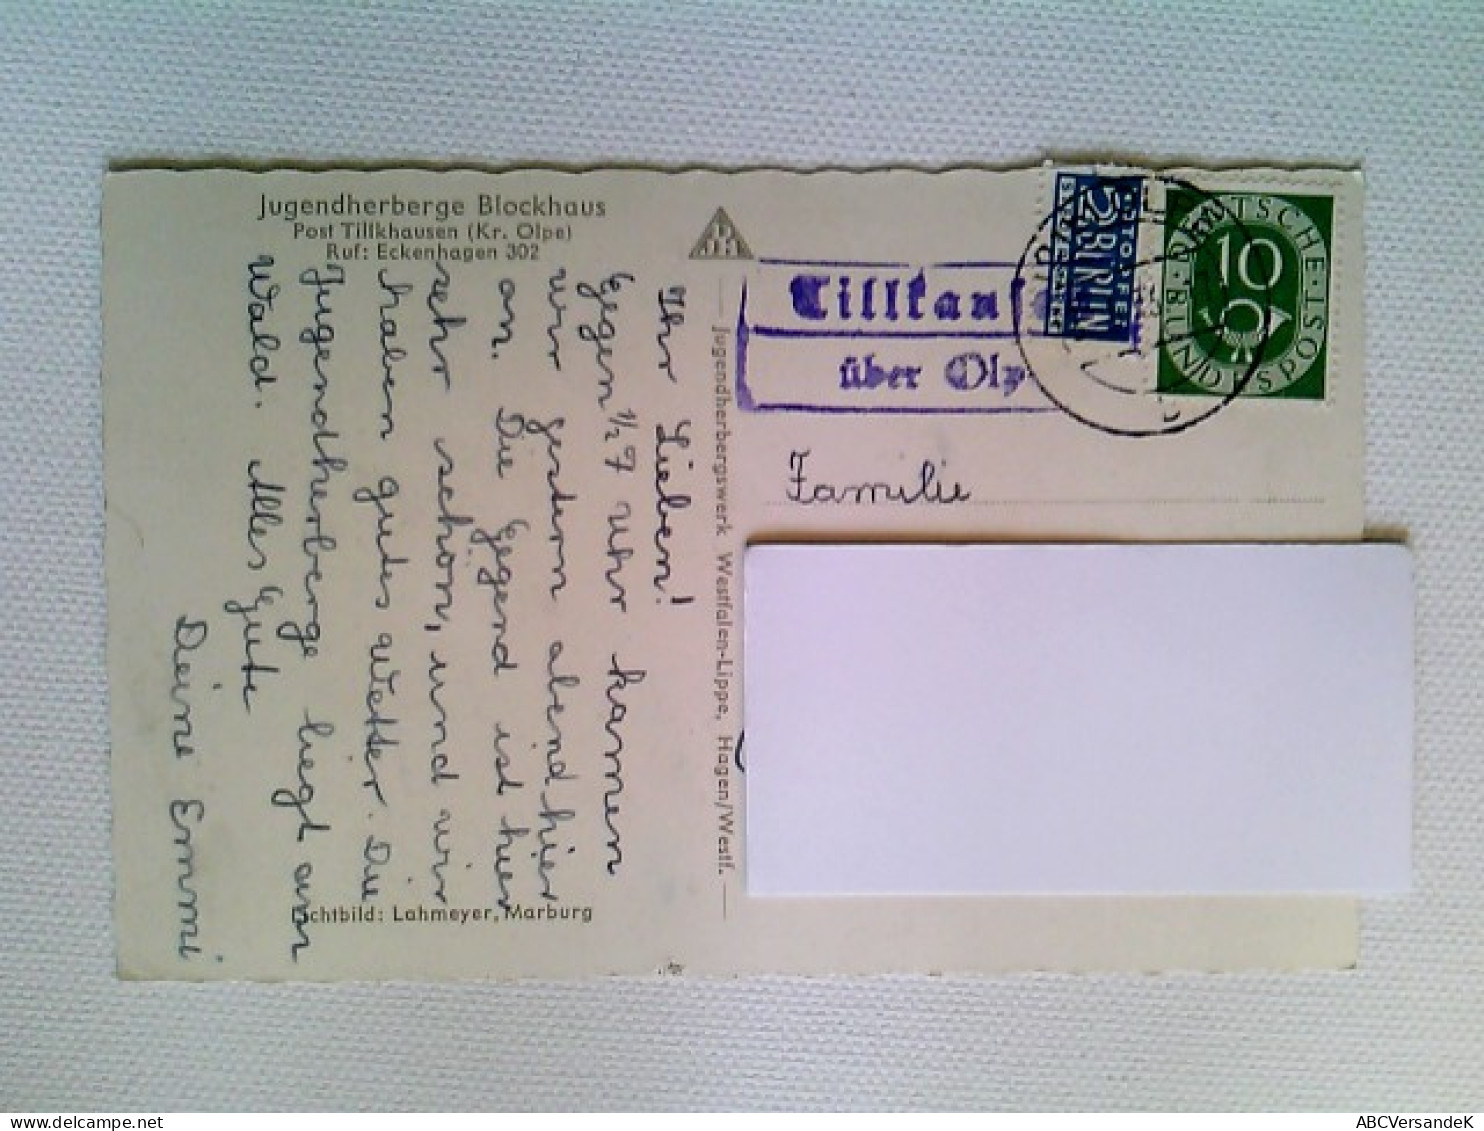 Jugendherberge Blockhaus
Post Tillkhausen (Kr. Olpe)
Ruf: Eckenhagen 302
Ihr Lieben!
Gegen 1/2 7 Uhr kamen
wir gestern abend hier
an. Die Gegend ist hier
sehr schön, und wir
haben gutes Wetter. Die
Jugendherberge liegt am
Wald. Alles Gute
Deine Emmi
Lichtbild: Lahmeyer, Marburg
Jugendherbergswerk Westfalen-Lippe, Hagen/Westf.
über
Familie
NOTOPFER
2 BERLIN
STEUERMARKE
DEUTSCHE BUNDESPOST
10
ABCVersandeK